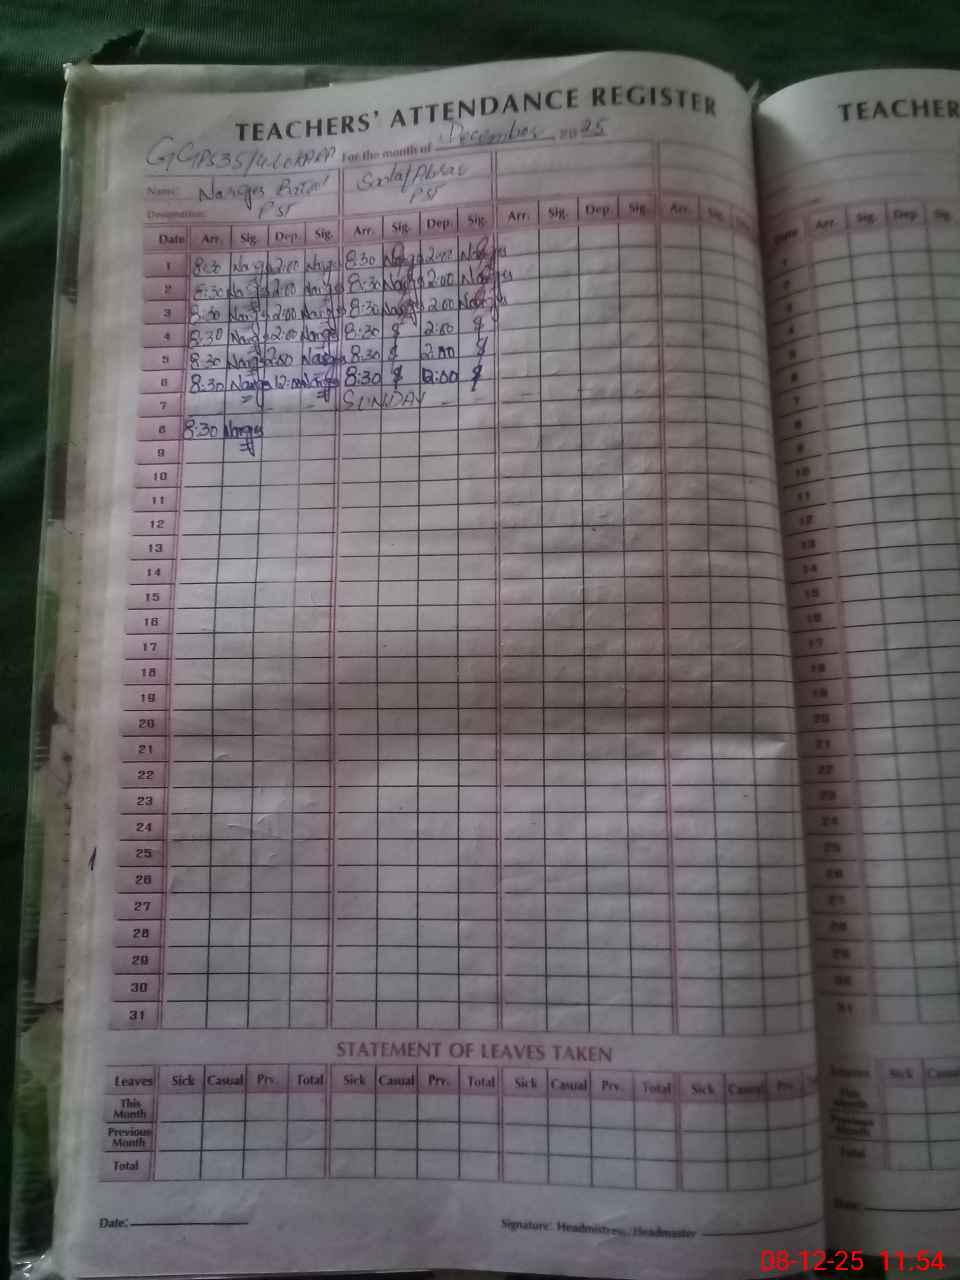 TEACHERS' ATTENDANCE REGISTER
For the month of December 2025
Name: Narges
Designation: PST PST
Date Arr. Sig. Dep. Sig. Arr. Sig. Dep. Sig. Arr. Sig. Dep. Sig. Arr. Sig. Dep.
1 8:30 Narges 2:00 Narges 8:30 Narges 2:00 Narges
2 8:30 Narges 2:00 Narges 8:30 Narges 2:00 Narges
3 8:30 Narges 2:00 Narges 8:30 Narges 2:00 Narges
4 8:30 Narges 2:00 Narges 8:30 2:00
5 8:30 Narges 2:00 Narges 8:30 2:00
6 8:30 Narges 12:00 Narges 8:30
7 SUNDAY
8 8:30 Narges
9
10
11
12
13
14
15
16
17
18
19
20
21
22
23
24
25
26
27
28
29
30
31
STATEMENT OF LEAVES TAKEN
Leaves Sick Casual Prv. Total Sick Casual Prv. Total Sick Casual Prv. Total Sick Casual Prv.
This Month
Previous Month
Total
Date:
Signature: Headmistress/Headmaster
TEACHER
Date Arr. Sig. Dep. Sig.
1
2
3
4
5
6
7
8
9
10
11
12
13
14
15
16
17
18
19
20
21
22
23
24
25
26
27
28
29
30
31
Leaves Sick
This Month
Previous Month
Total
Date:
08-12-25 11:54